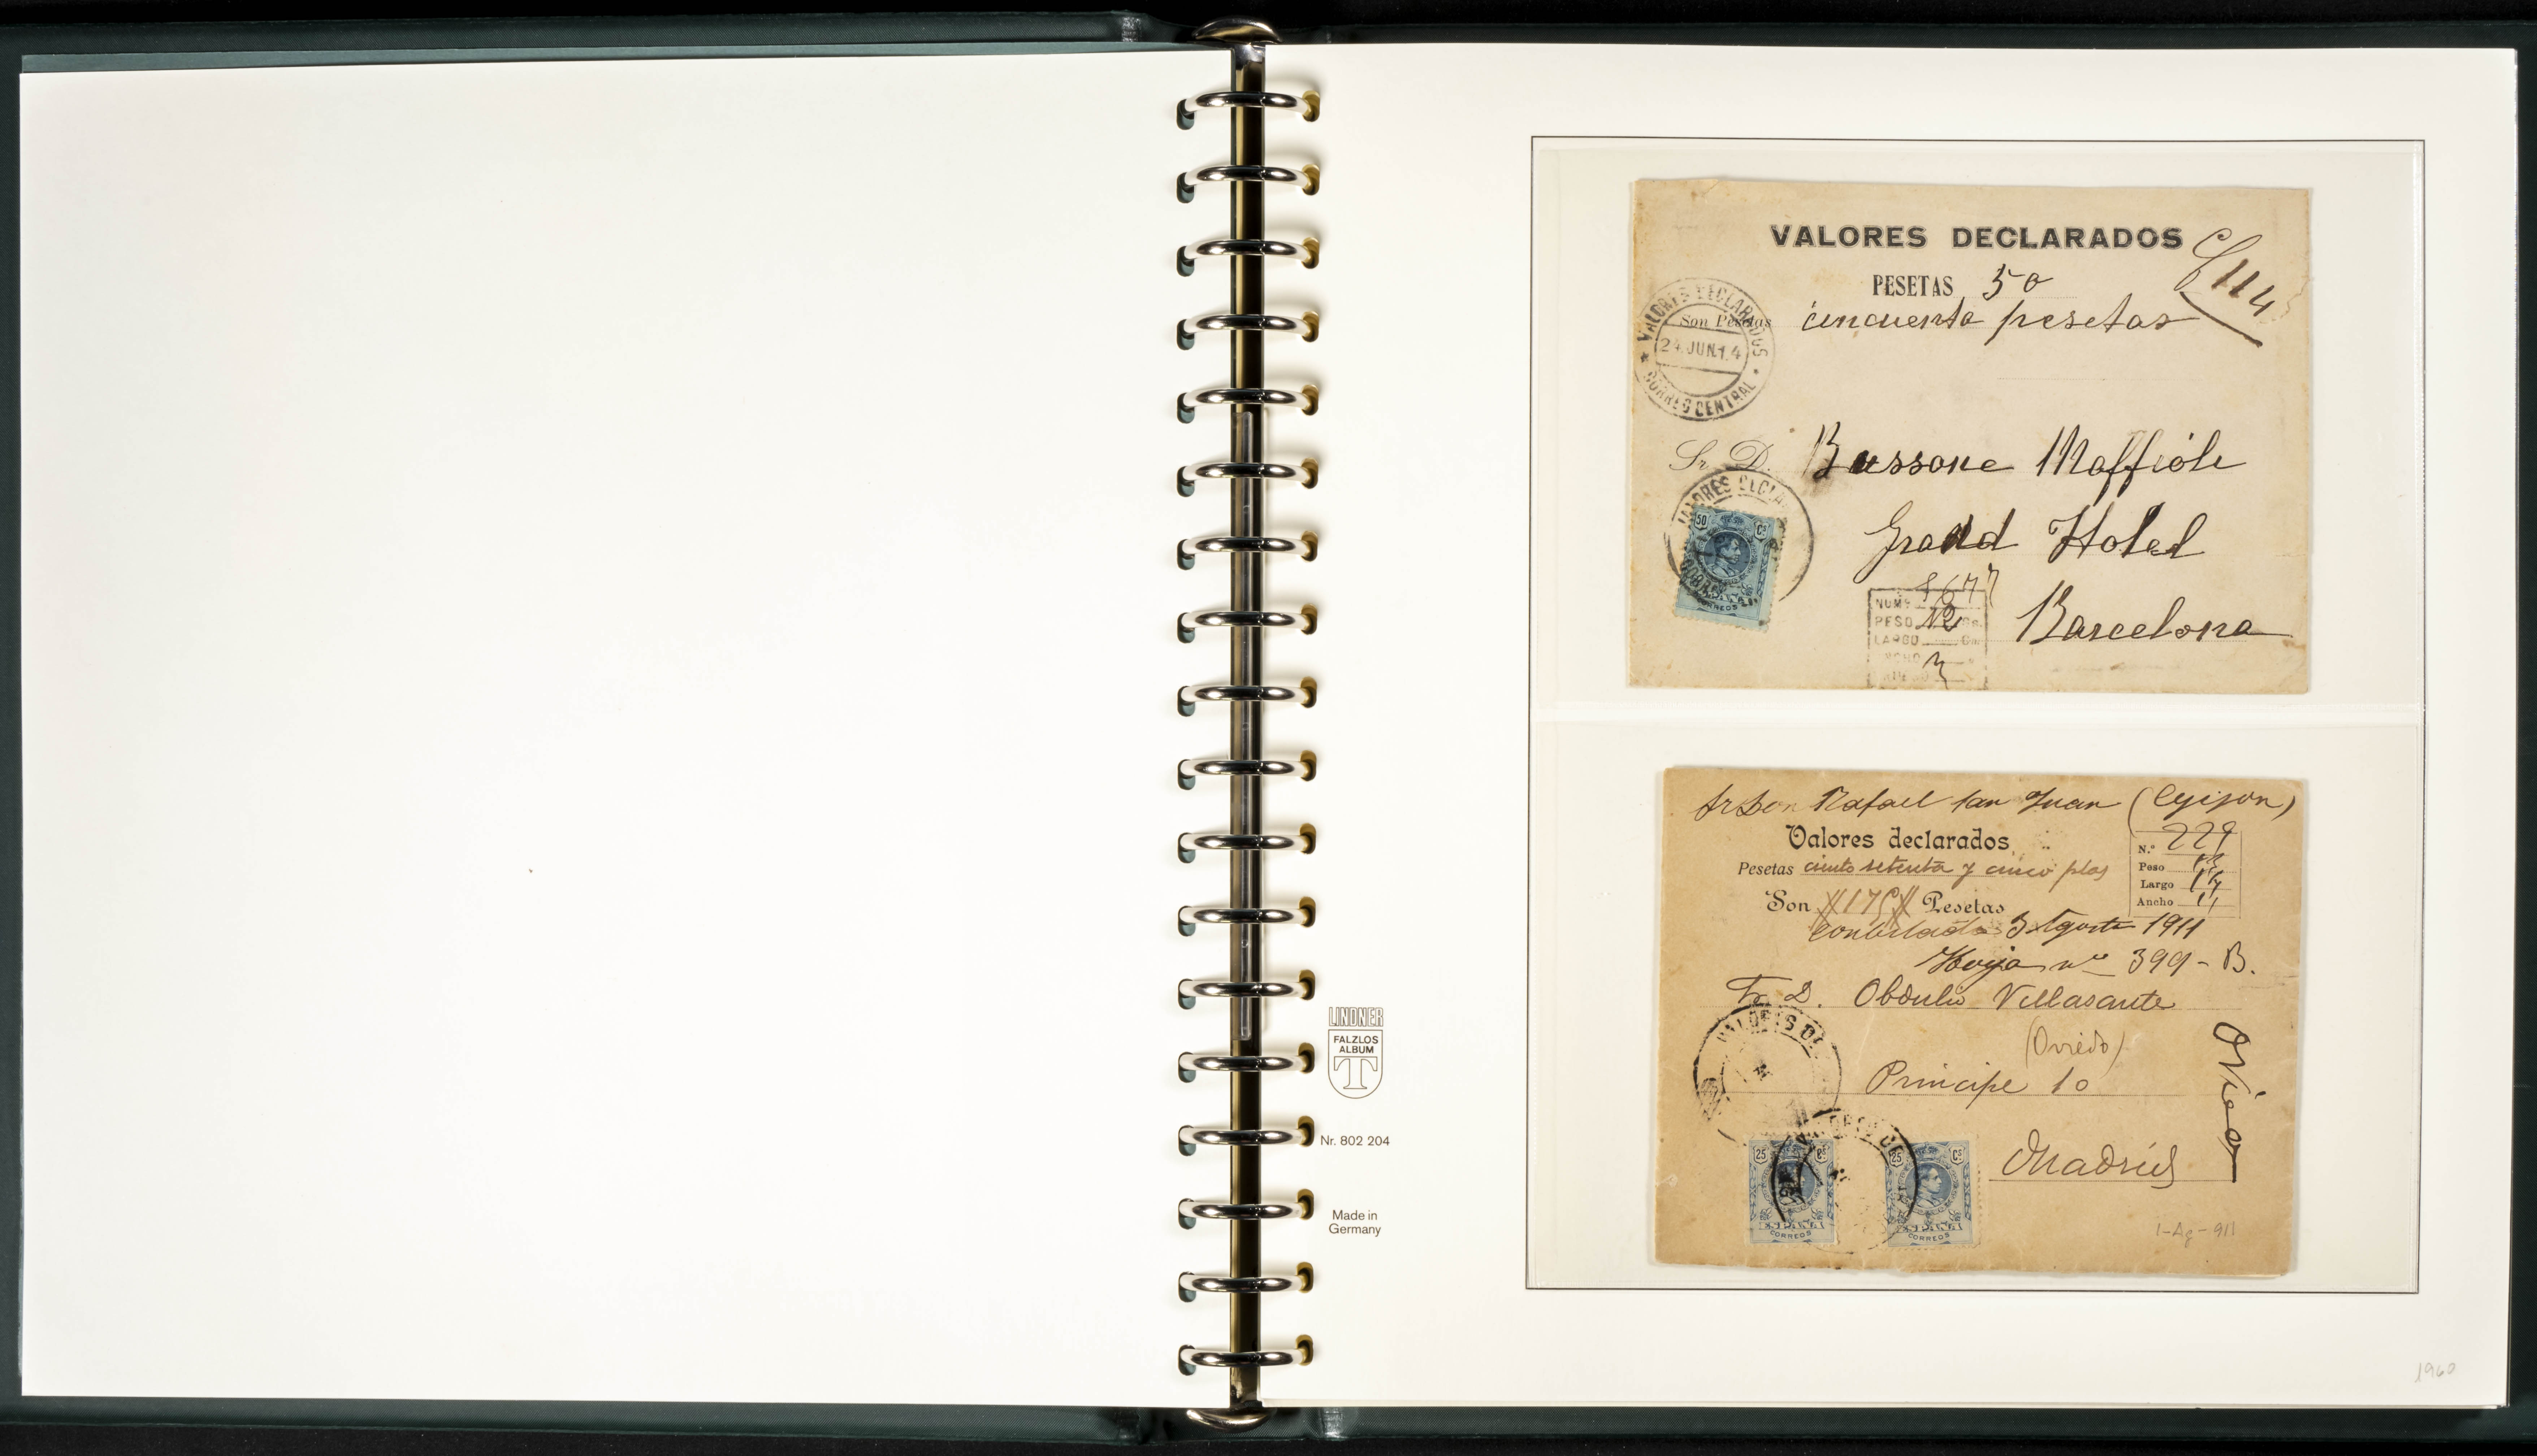 LINDNER
FALZLOS
ALBUM
T
Nr. 802 204
Made in
Germany
VALORES DECLARADOS
PESETAS 50
Son Pesetas cincuenta pesetas
114
VALORES DECLARADOS
24 JUN 14
CORREO CENTRAL
Sr. D. Bussone Maffiole
VALORES DECLA
50 Cs
CORREOS
Grand Hotel
Barcelona
NUM
PESO 12 Gs.
LARGO
Sr Don Rafael San Juan (Gijon)
Valores declarados
Pesetas ciento setenta y cinco ptas
Son 175 Pesetas
N.º 229
Peso
Largo 17
Ancho 11
contestada 3 Agosto 1911
Hoja nº 399-B.
Sr. D. Obdulio Villasante
(Oviedo)
VALORES DE
Principe 10
Madrid
Oviedo
VALORES DE
25 Cs
ESPAÑA
CORREOS
25 Cs
ESPAÑA
CORREOS
1-Ag-911
1960